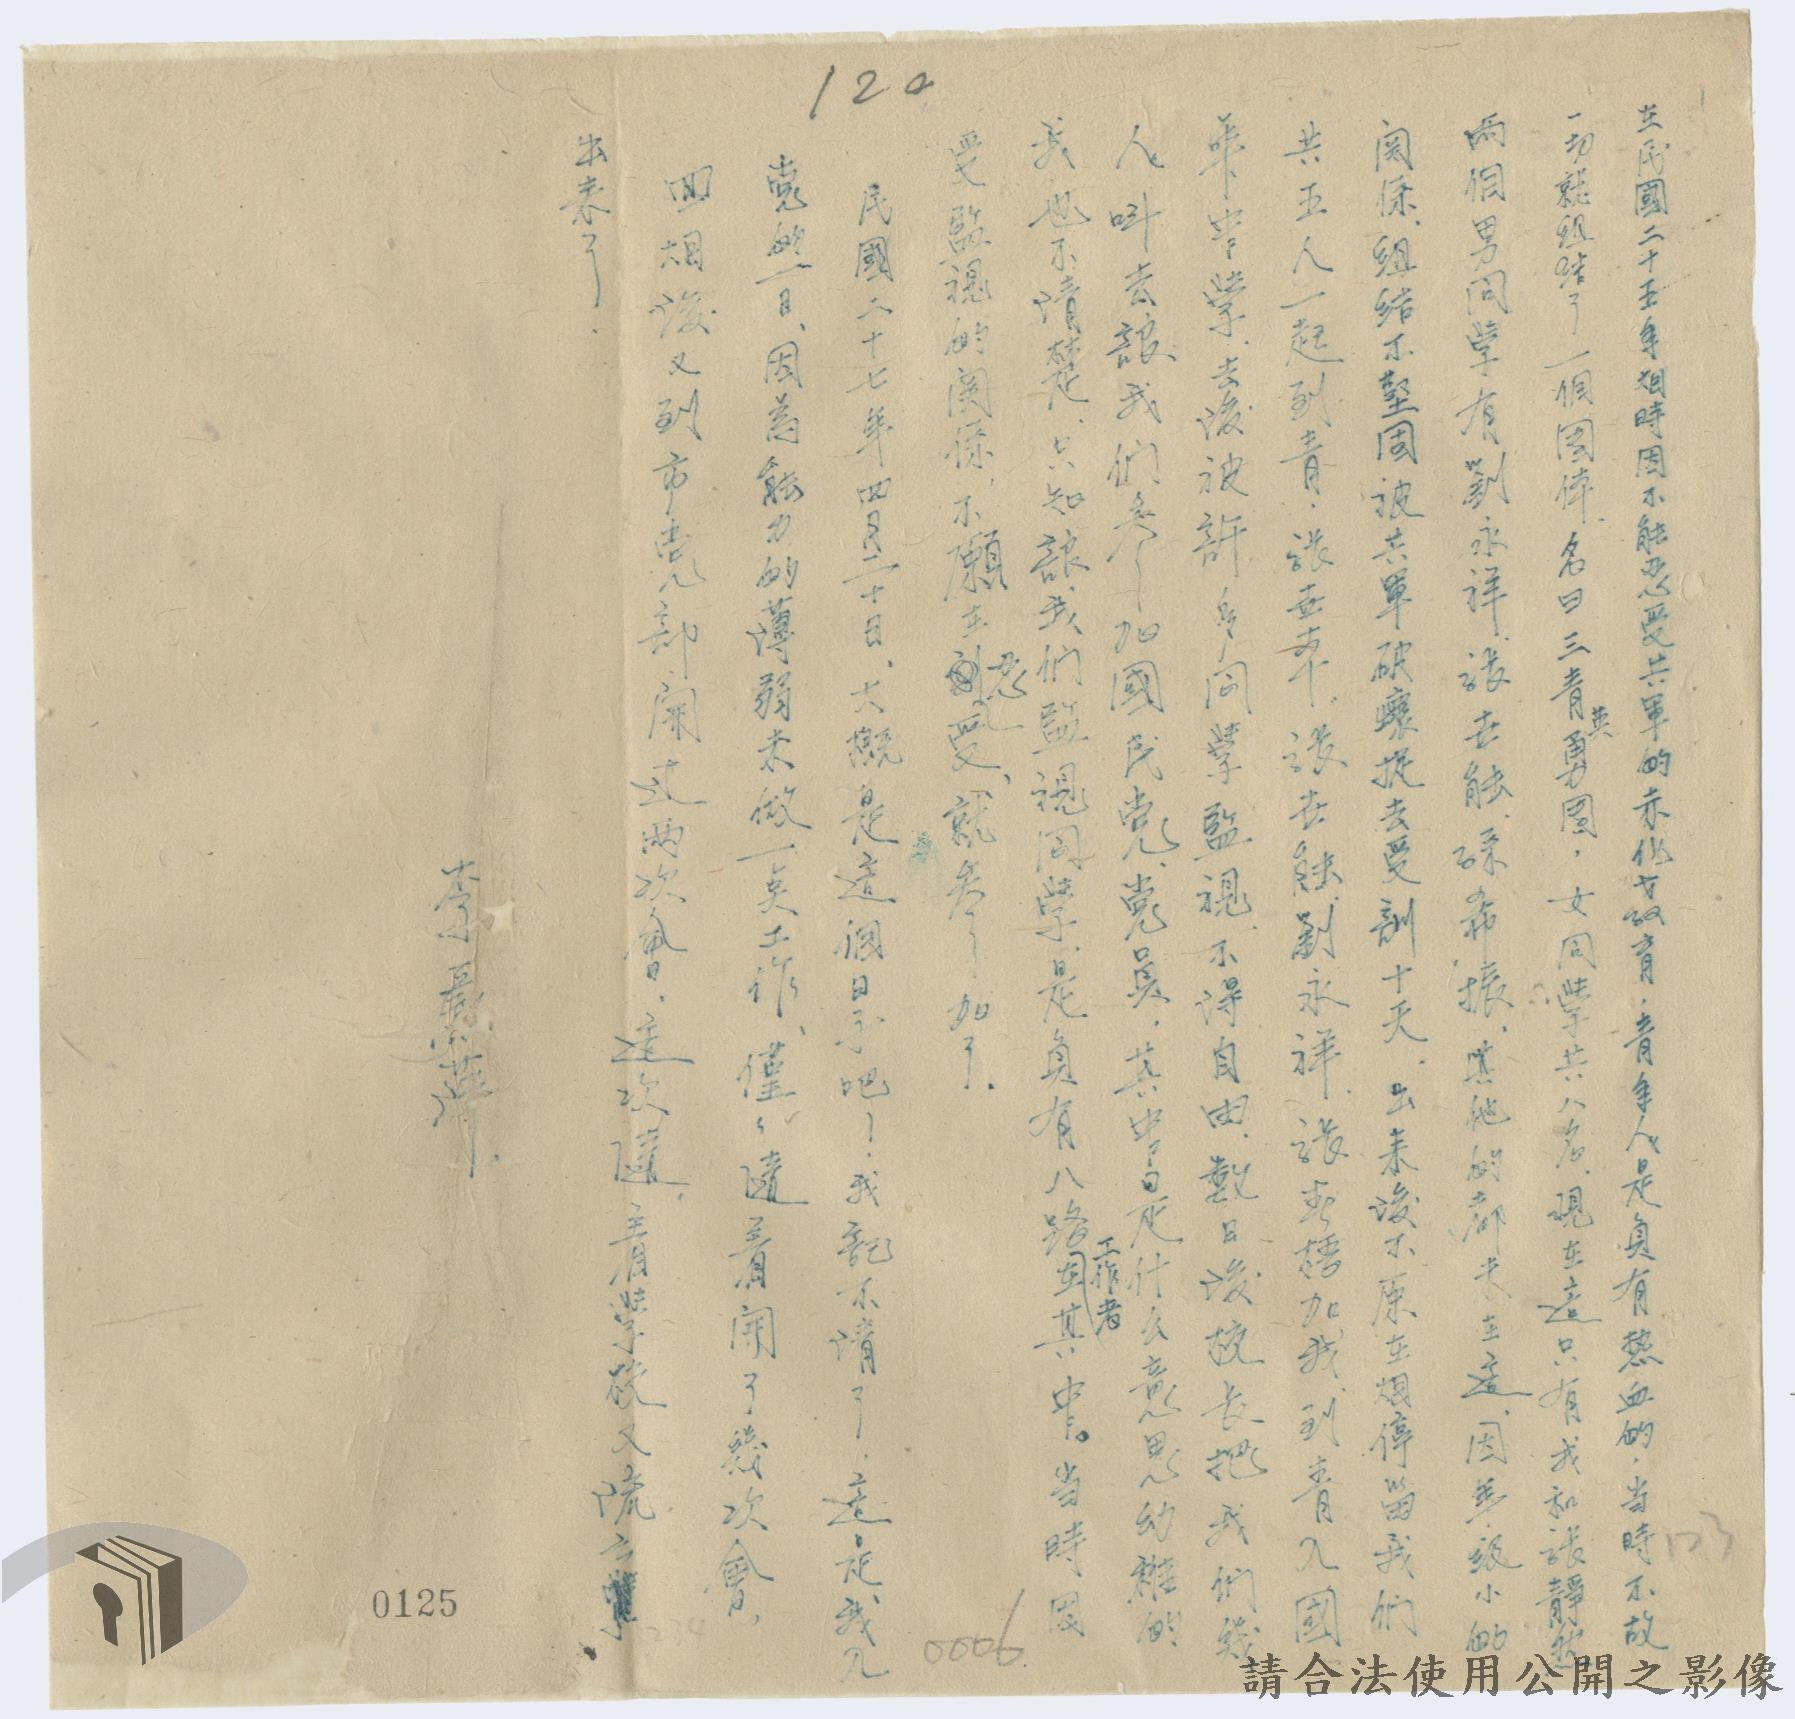 120
在民國二十五年烟時因不能忍受共軍的赤化教育，青年人是負有熱血的，当時不故
一切就組結了一個團体，名曰三青英勇團，女同學共八名，現在這只有我和張靜然
兩個男同學有劉永祥、張世能、孫希振，其他的都未在這，因年級小的
関係，組結不堅固被共軍破壞捉去受訓十天，出來後不原在烟停留我們
共五人一起到青，張世能劉永祥張加我，到青入國
華中學，去後被許多同學監視，不得自由，數日後校長把我們幾
人叫去讓我們参加國民党，党員，其中是什么意思幼稚的
我也不清楚，只知讓我們監視同學，是負有八路工作者在其中。当時因
受監視的関係，不願在忍受，就参加了。
民國二十七年四月二十日、大概是這個日子吧！我記不清了，這是我入
党的一日、因為能力的薄弱未做一点工作、僅々隨着開了幾次會、
回烟後又到市党部開过兩次會，這次隨着學校又流亡
出来了．
李
0125
0006
123
234
請合法使用公開之影像